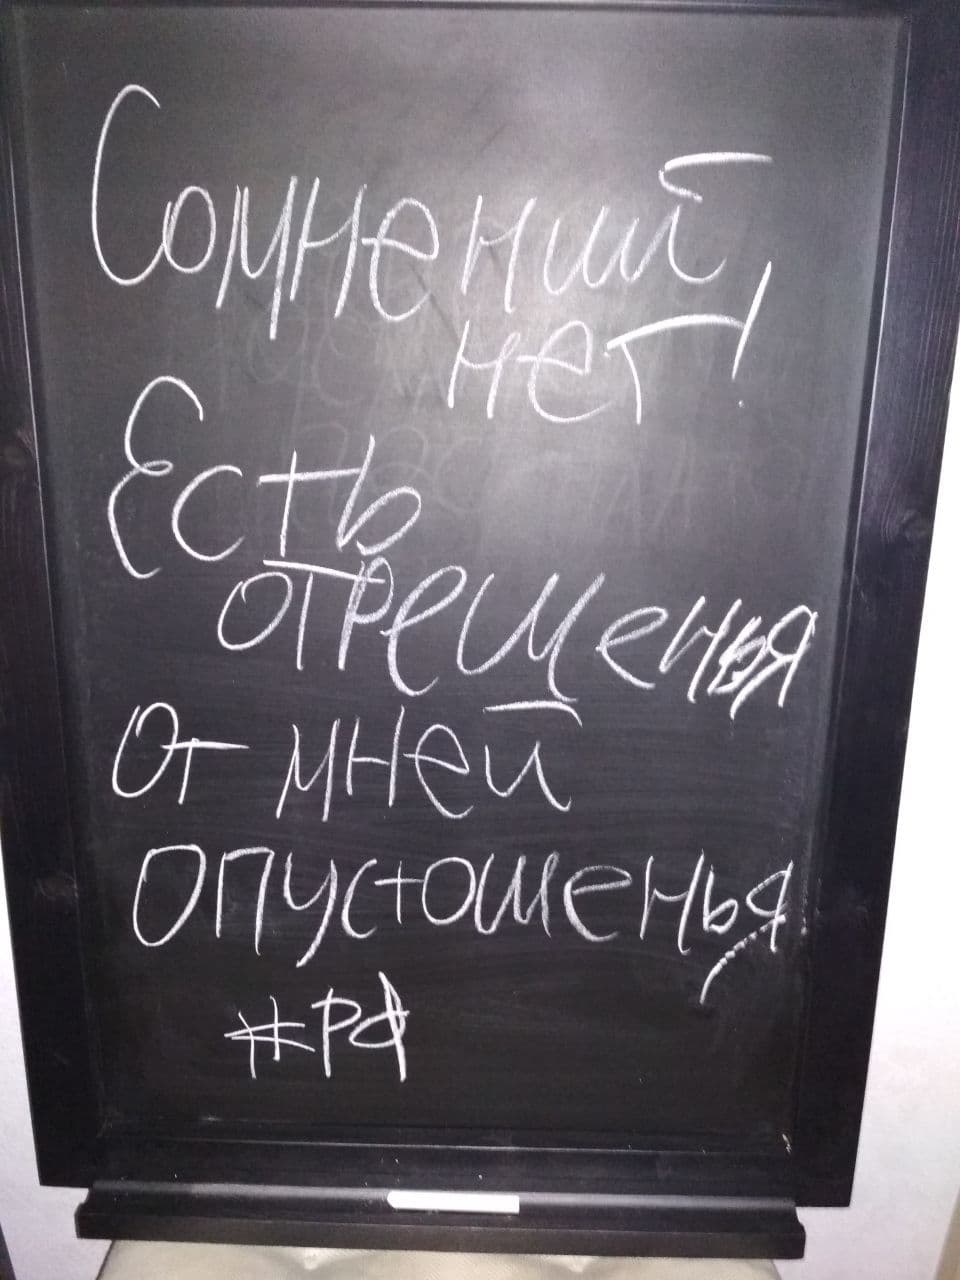 Сомнений
нет!
Есть
отрещенья
От мней
опустошенья
#РФ